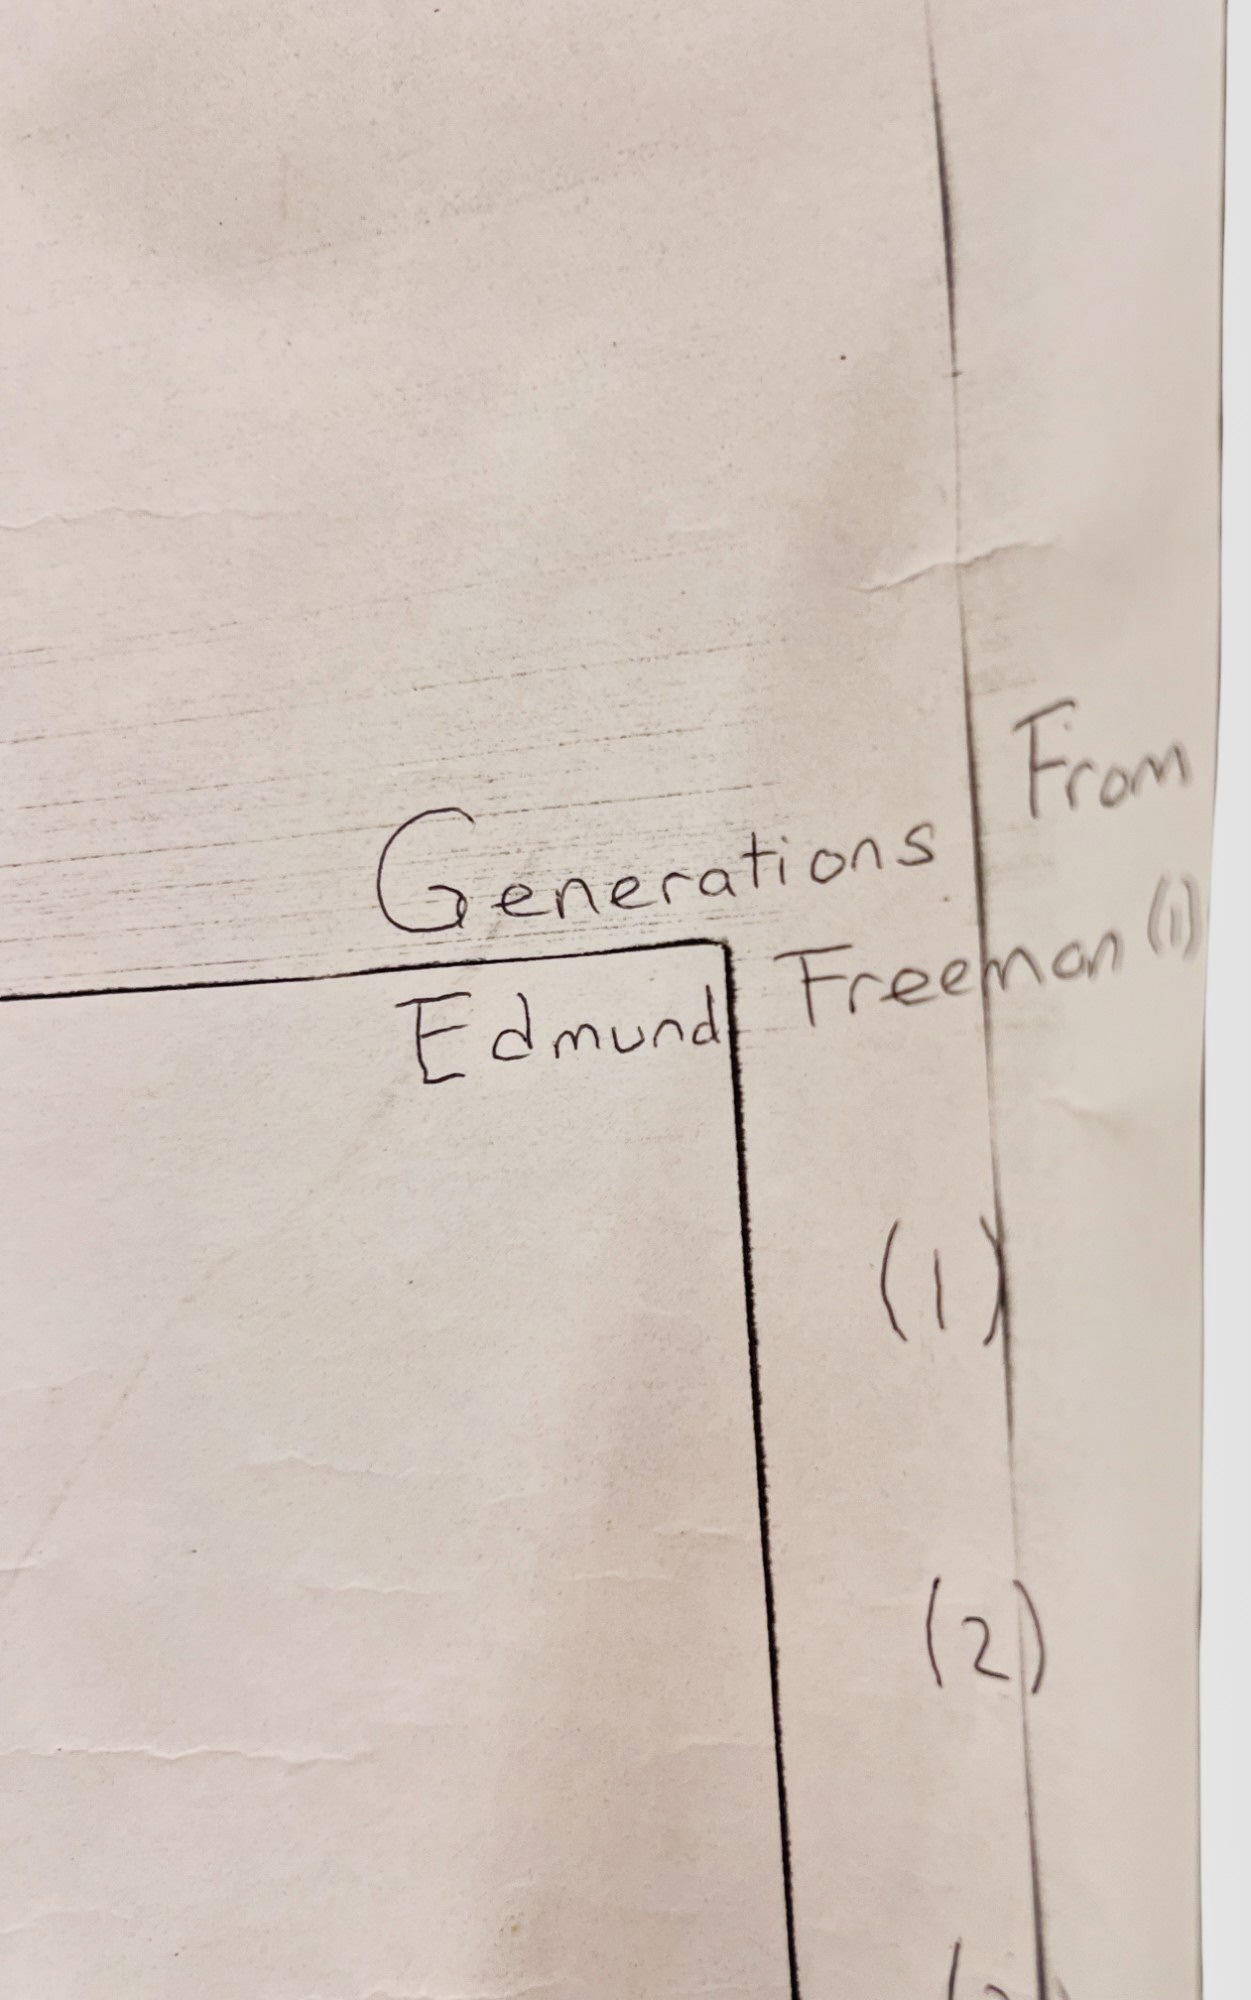 Generations From
Edmund Freeman (1)
(1)
(2)